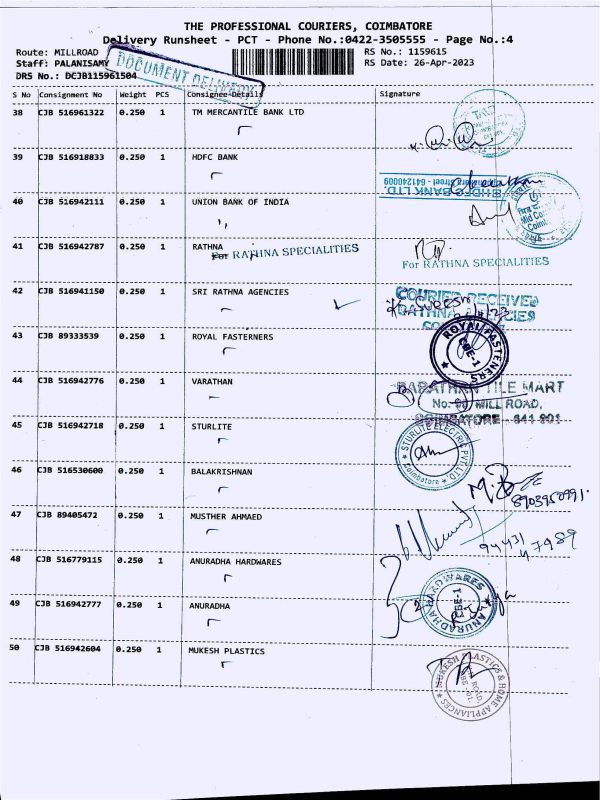 THE PROFESSIONAL COURIERS, COIMBATORE
Delivery Runsheet - PCT - Phone No.:0422-3505555 - Page No.:4
Route: MILLROAD RS No.: 1159615
Staff: PALANISAMY RS Date: 26-Apr-2023
DRS No.: DCJB115961504
DOCUMENT DELIVERY
S No Consignment No Weight PCS Consignee Details Signature
38 CJB 516961322 0.250 1 TM MERCANTILE BANK LTD
39 CJB 516918833 0.250 1 HDFC BANK
HDFC BANK LTD.
Street - 641240009
40 CJB 516942111 0.250 1 UNION BANK OF INDIA
41 CJB 516942787 0.250 1 RATHNA
For RATHNA SPECIALITIES For RATHNA SPECIALITIES
42 CJB 516941150 0.250 1 SRI RATHNA AGENCIES
COURIER RECEIVED
RATHNA AGENCIES
43 CJB 89333539 0.250 1 ROYAL FASTERNERS
ROYAL FASTENERS
CBE-1
44 CJB 516942776 0.250 1 VARATHAN
BARATHAN TILE MART
MILL ROAD,
COIMBATORE - 641 001
45 CJB 516942718 0.250 1 STURLITE
STURLITE ELECTRIC PVT LTD
Coimbatore
46 CJB 516530600 0.250 1 BALAKRISHNAN
8903950991
47 CJB 89405472 0.250 1 MUSTHER AHMAED
94431
47989
48 CJB 516779115 0.250 1 ANURADHA HARDWARES
ANURADHA HARDWARES
CBE-1
49 CJB 516942777 0.250 1 ANURADHA
50 CJB 516942604 0.250 1 MUKESH PLASTICS
MUKESH PLASTICS & HOME APPLIANCES